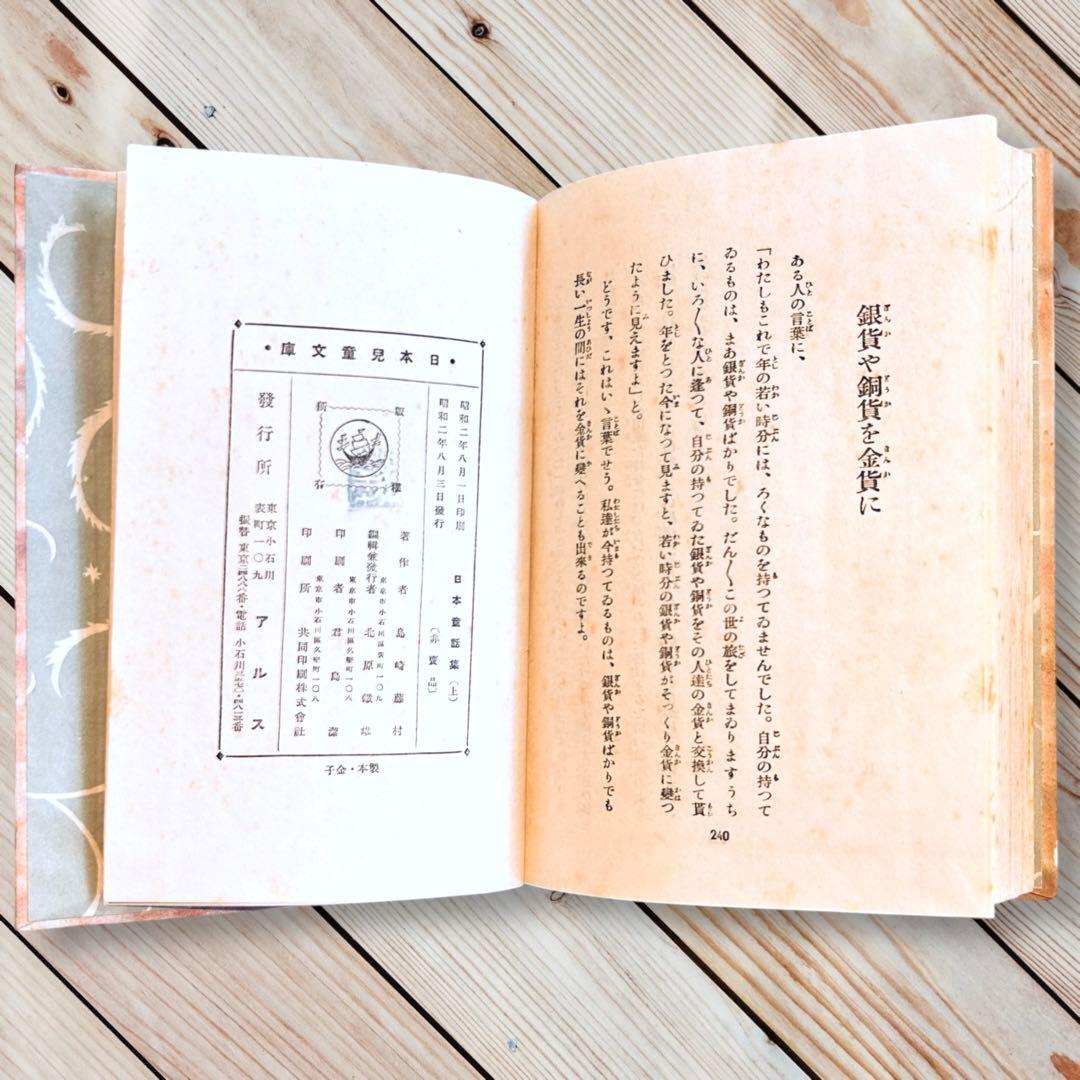 銀貨や銅貨を金貨に
ある人の言葉に、
「わたしもこれで年の若い時分には、ろくなものを持つてゐませんでした。自分の持つて
ゐるものは、まあ銀貨や銅貨ばかりでした。だん／＼この世の旅をしてまゐりますうち
に、いろ／＼な人に逢つて、自分の持つてゐた銀貨や銅貨をその人達の金貨と交換して貰
ひました。年をとつた今になつて見ますと、若い時分の銀貨や銅貨がそつくり金貨に變つ
たように見えますよ」と。
どうです、これはいゝ言葉でせう。私達が今持つてゐるものは、銀貨や銅貨ばかりでも
長い一生の間にはそれを金貨に變へることも出來るのですよ。
240
日本兒童文庫
昭和二年八月一日印刷
昭和二年八月三日發行
日本童話集（上）
〔非賣品〕
版權所有
著作者 島崎藤村
東京市小石川區表町一〇九
編輯兼發行者 北原鐵雄
東京市小石川區久堅町一〇八
印刷者 君島潔
東京市小石川區久堅町一〇八
印刷所 共同印刷株式會社
發行所
東京小石川
表町一〇九
アルス
振替東京二四八八番・電話小石川
製本・金子